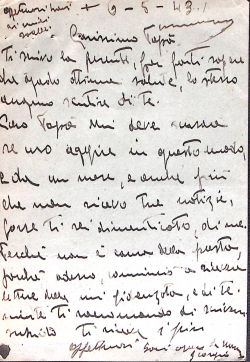 affettuosi baci
ai miei
fratelli
6-5-43
Carissimo Papà
Ti invio la presente, per farti sapere
che godo ottima salute, lo stesso
auguro sentire di te.
Caro Papà mi deve scusare
se uso aggire in questo modo,
è da un mese, e anche più
che non ricevo tue notizie,
forse ti sei dimenticato, di me.
Perché non è causa della posta,
perché adesso, comincio a ricevere
lettere della mia fidanzata, e di te
niente ti raccomando di
subito
affettuosi baci
Giorgio